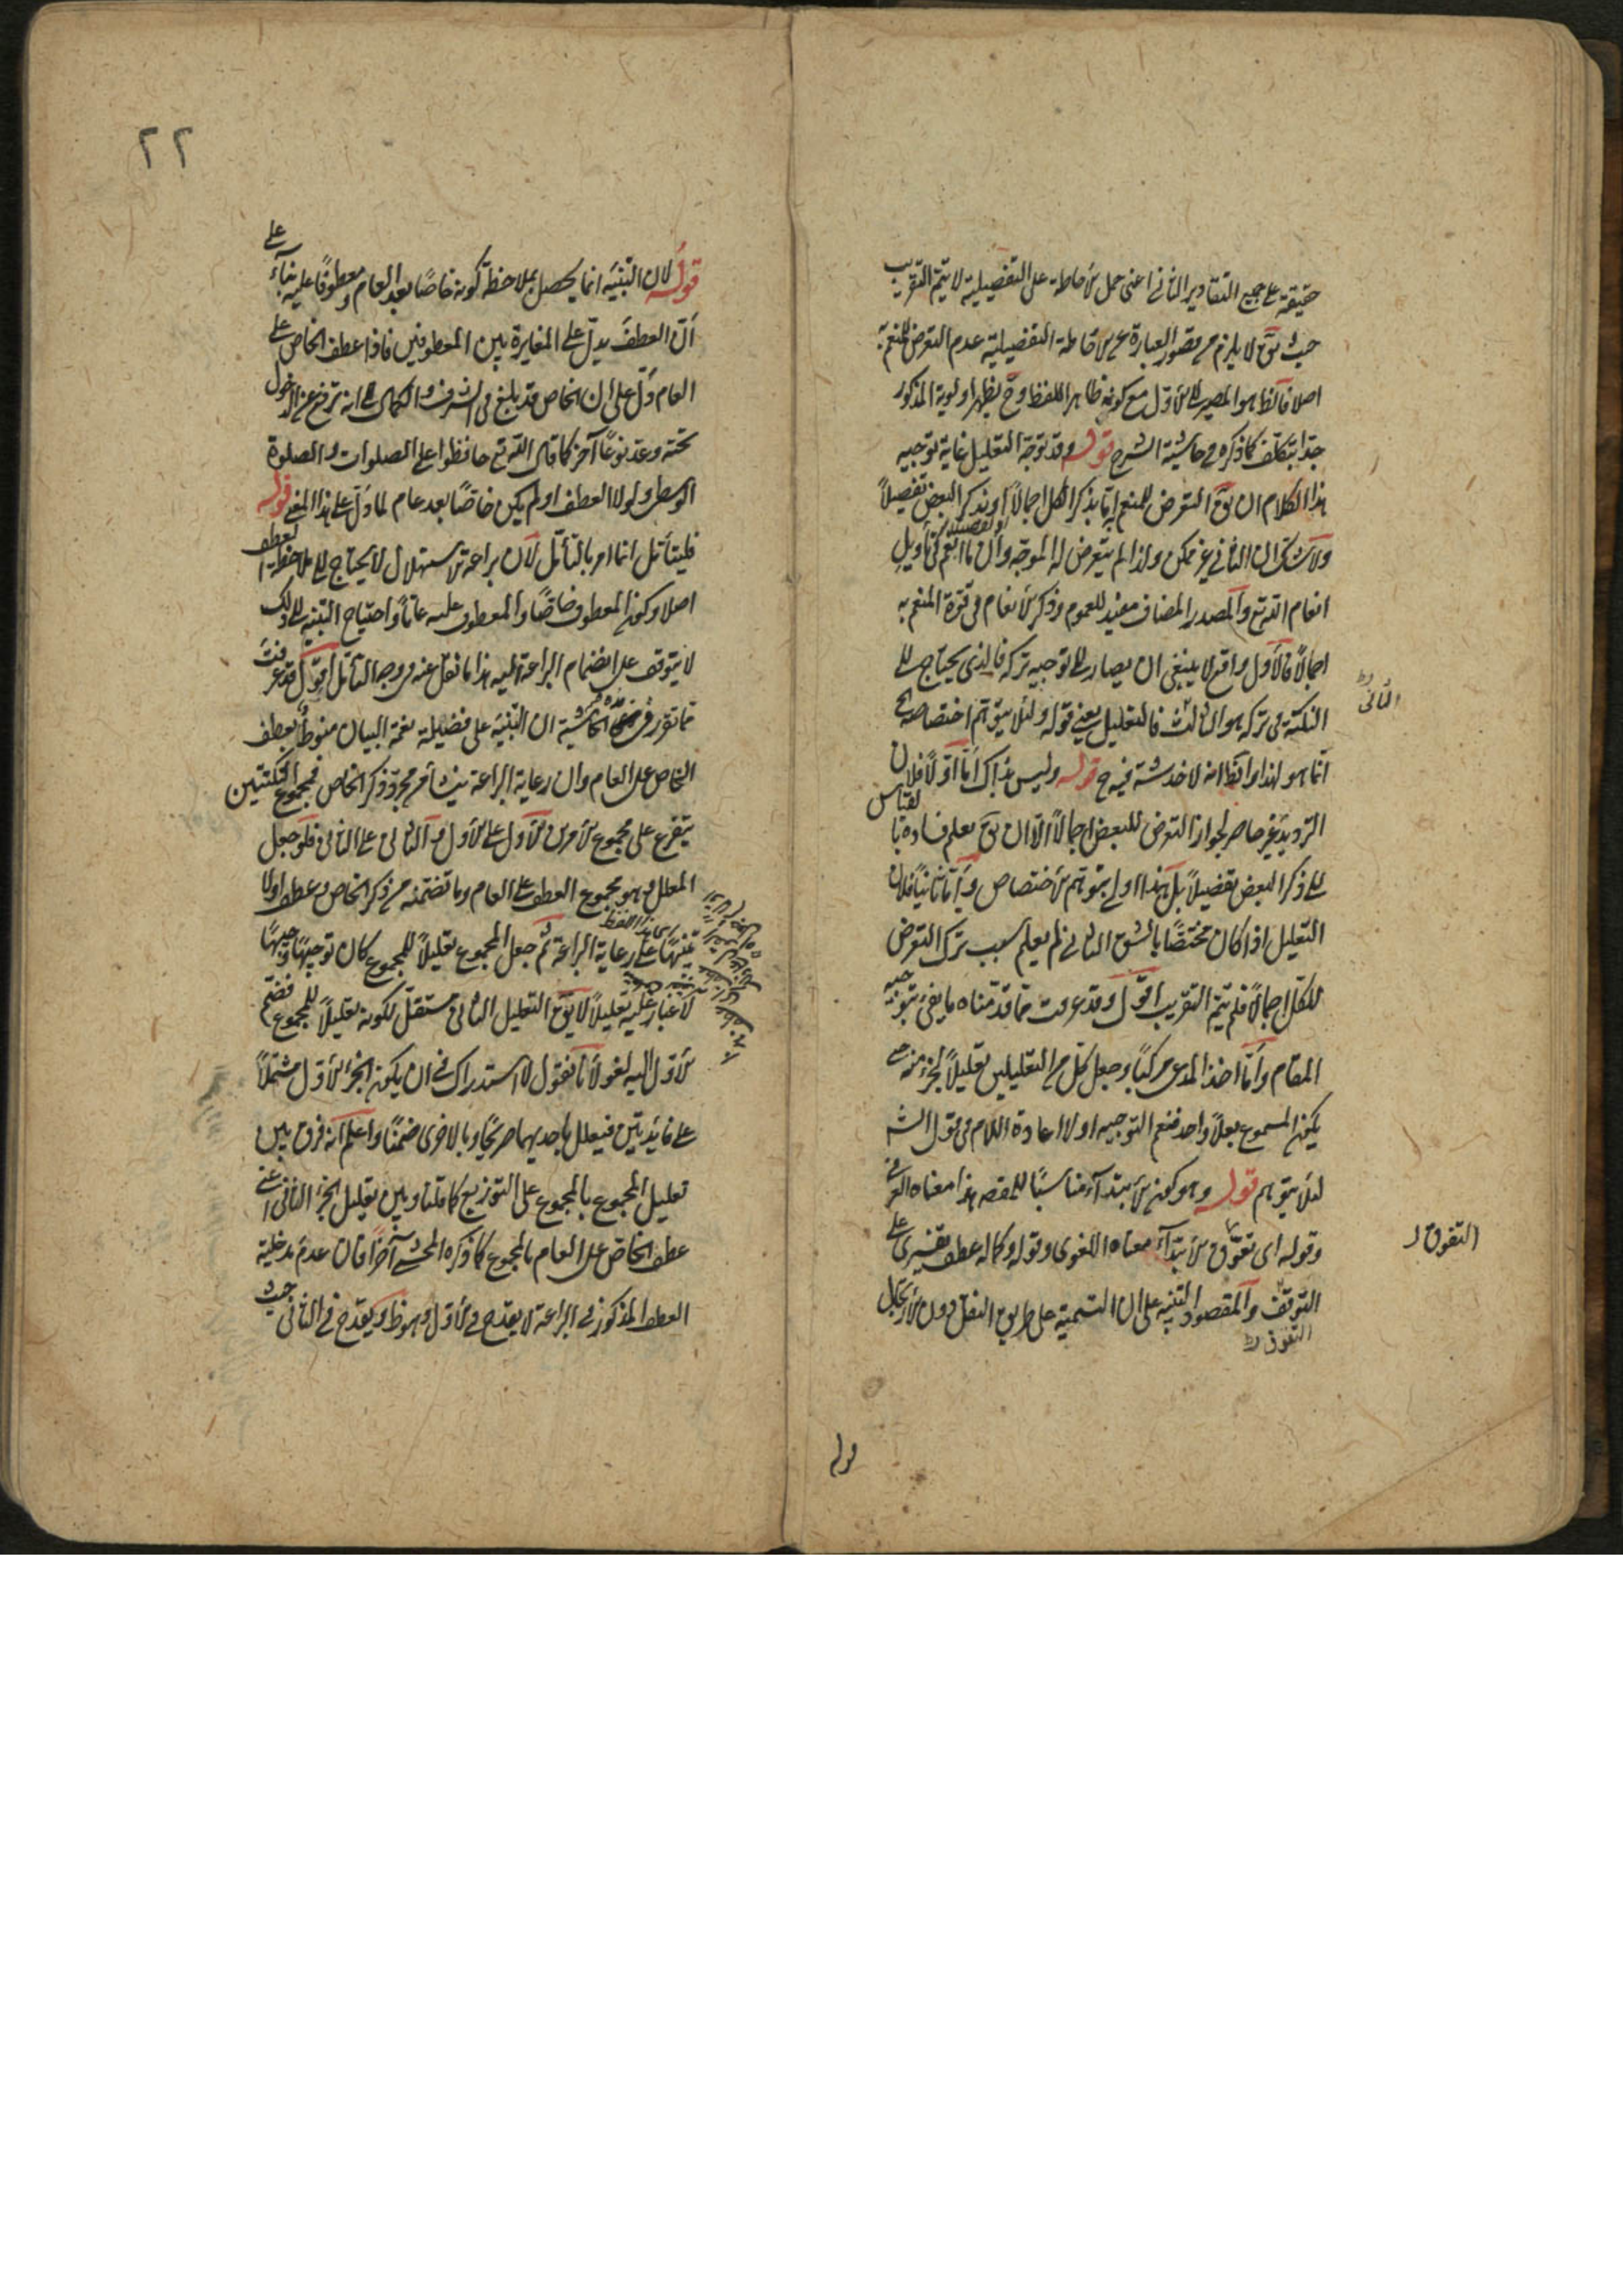 حقيقة على جميع التقادير الثاني اعنى حمل الاحاطة على التفصيلية لا يتم التقريب
حيث يق لا يلزم من قصور العبارة عن الاحاطة التفصيلية عدم التعرض للمنعم به
اصلا فالظ هو المصير الى الاول مع كونه ظاهر اللفظ وح يظهر اولوية المذكور
جدا بتكلف كما ذكره في حاشية الشرح قوله وقد توجه التعليل غاية توجيه
هذا الكلام ان يق التعرض للمنعم به اما بذكر الكل اجمالاً او بذكر البعض تفصيلاً
ولا شك ان الثاني غير ممكن ولذا لم يتعرض له الموجه وان ما انعم في تأويل
انعام الله تع والمصدر المضاف مفيد للعموم وذكر الانعام في قوة المنعم به
اجمالاً فالاول واقع لا ينبغى ان يصار الى توجيه تركه فالذى يحتاج الى
النكتة في تركه هو الثالث فالتعليل يعنى قوله ولئلا يتوهم اختصاصه
انما هو لهذا والظ انه لا خدشة فيه ح قوله وليس بذاك اما اولاً فلان
الترديد غير حاصر لجواز التعرض للبعض اجمالاً الا ان يق يعلم فساده بالقياس
الى ذكر البعض تفصيلاً بل هذا اولى بتوهم الاختصاص واما ثانياً فلان
التعليل اذا كان مختصًا بالشق الثاني لم يعلم سبب ترك التعرض
للكل اجمالاً فلم يتم التقريب اقول وقد عرفت مما قدمناه ما يفى بتوجيه
المقام واما اخذ المدعى مركبًا وجعل كل من التعليلين تعليلاً لجزء منه حتى
يكون المجموع تعليلاً واحد فنعم التوجيه لولا اعادة اللام في قول الش
لئلا يتوهم قوله وهو كون الابتداء مناسبًا للمقصد هذا معناه العرفى
وقوله اى تفوق الابتداء معناه اللغوى وقوله وكماله عطف تفسيرى على
التوقف والمقصود التنبيه على ان التسمية على طريق النقل دون الارتجال
الثانى
التفوق
التفوق
قوله
٢٢
قوله لان التنبيه انما يحصل بملاحظة كونه خاصًا بعد العام ومعطوفًا عليه بناء على
ان العطف يدل على المغايرة بين المعطوفين فاذا عطف الخاص على
العام دل على ان الخاص قد بلغ في الشرف والكمال الى انه ترفع عن الدخول
تحته وعد نوعًا آخر كما قال الله تع حافظوا على الصلوات والصلوة
الوسطى ولولا العطف او لم يكن خاصًا بعد عام لما دل على هذا المعنى قوله
فليتأمل انما امر بالتأمل لان براعة الاستهلال لا يحتاج الى ملاحظة العطف
اصلا وكون المعطوف خاصًا والمعطوف عليه عامًا واحتياج التنبيه الى ذلك
لا يتوقف على انضمام البراعة اليه هذا ما نقل عنه في وجه التأمل اقول قد عرفت
مما تقرر في هذه الحاشية ان التنبيه على فضيلة نعمة البيان منوط بعطف
الخاص على العام وان رعاية البراعة ينشأ من مجرد ذكر الخاص فمجموع النكتتين
يتفرع على مجموع الامرين الاول على الاول والثانى على الثانى فلو جعل
المعلل هو مجموع العطف على العام وما تضمنه من ذكر الخاص وعطف اولا
تنبيهًا على رعاية البراعة ثم جعل المجموع تعليلاً للمجموع كان توجيهًا وجيهًا
لا غبار عليه تعليلاً لا يق التعليل الثانى مستقل لكونه تعليلاً للمجموع فضم
الاول اليه لغو لانا نقول لا استدراك في ان يكون الجزء الاول مشتملاً
على فائدتين فيعلل باحديهما صريحًا وبالاخرى ضمنًا واعلم انه فرق بين
تعليل المجموع بالمجموع على التوزيع كما قلنا وبين تعليل الجزء الثانى اعنى
عطف الخاص على العام بالمجموع كما ذكره المحشى آخرًا فان عدم مدخلية
العطف المذكور في البراعة لا يقدح في الاول وهو ظ ويقدح في الثانى حيث